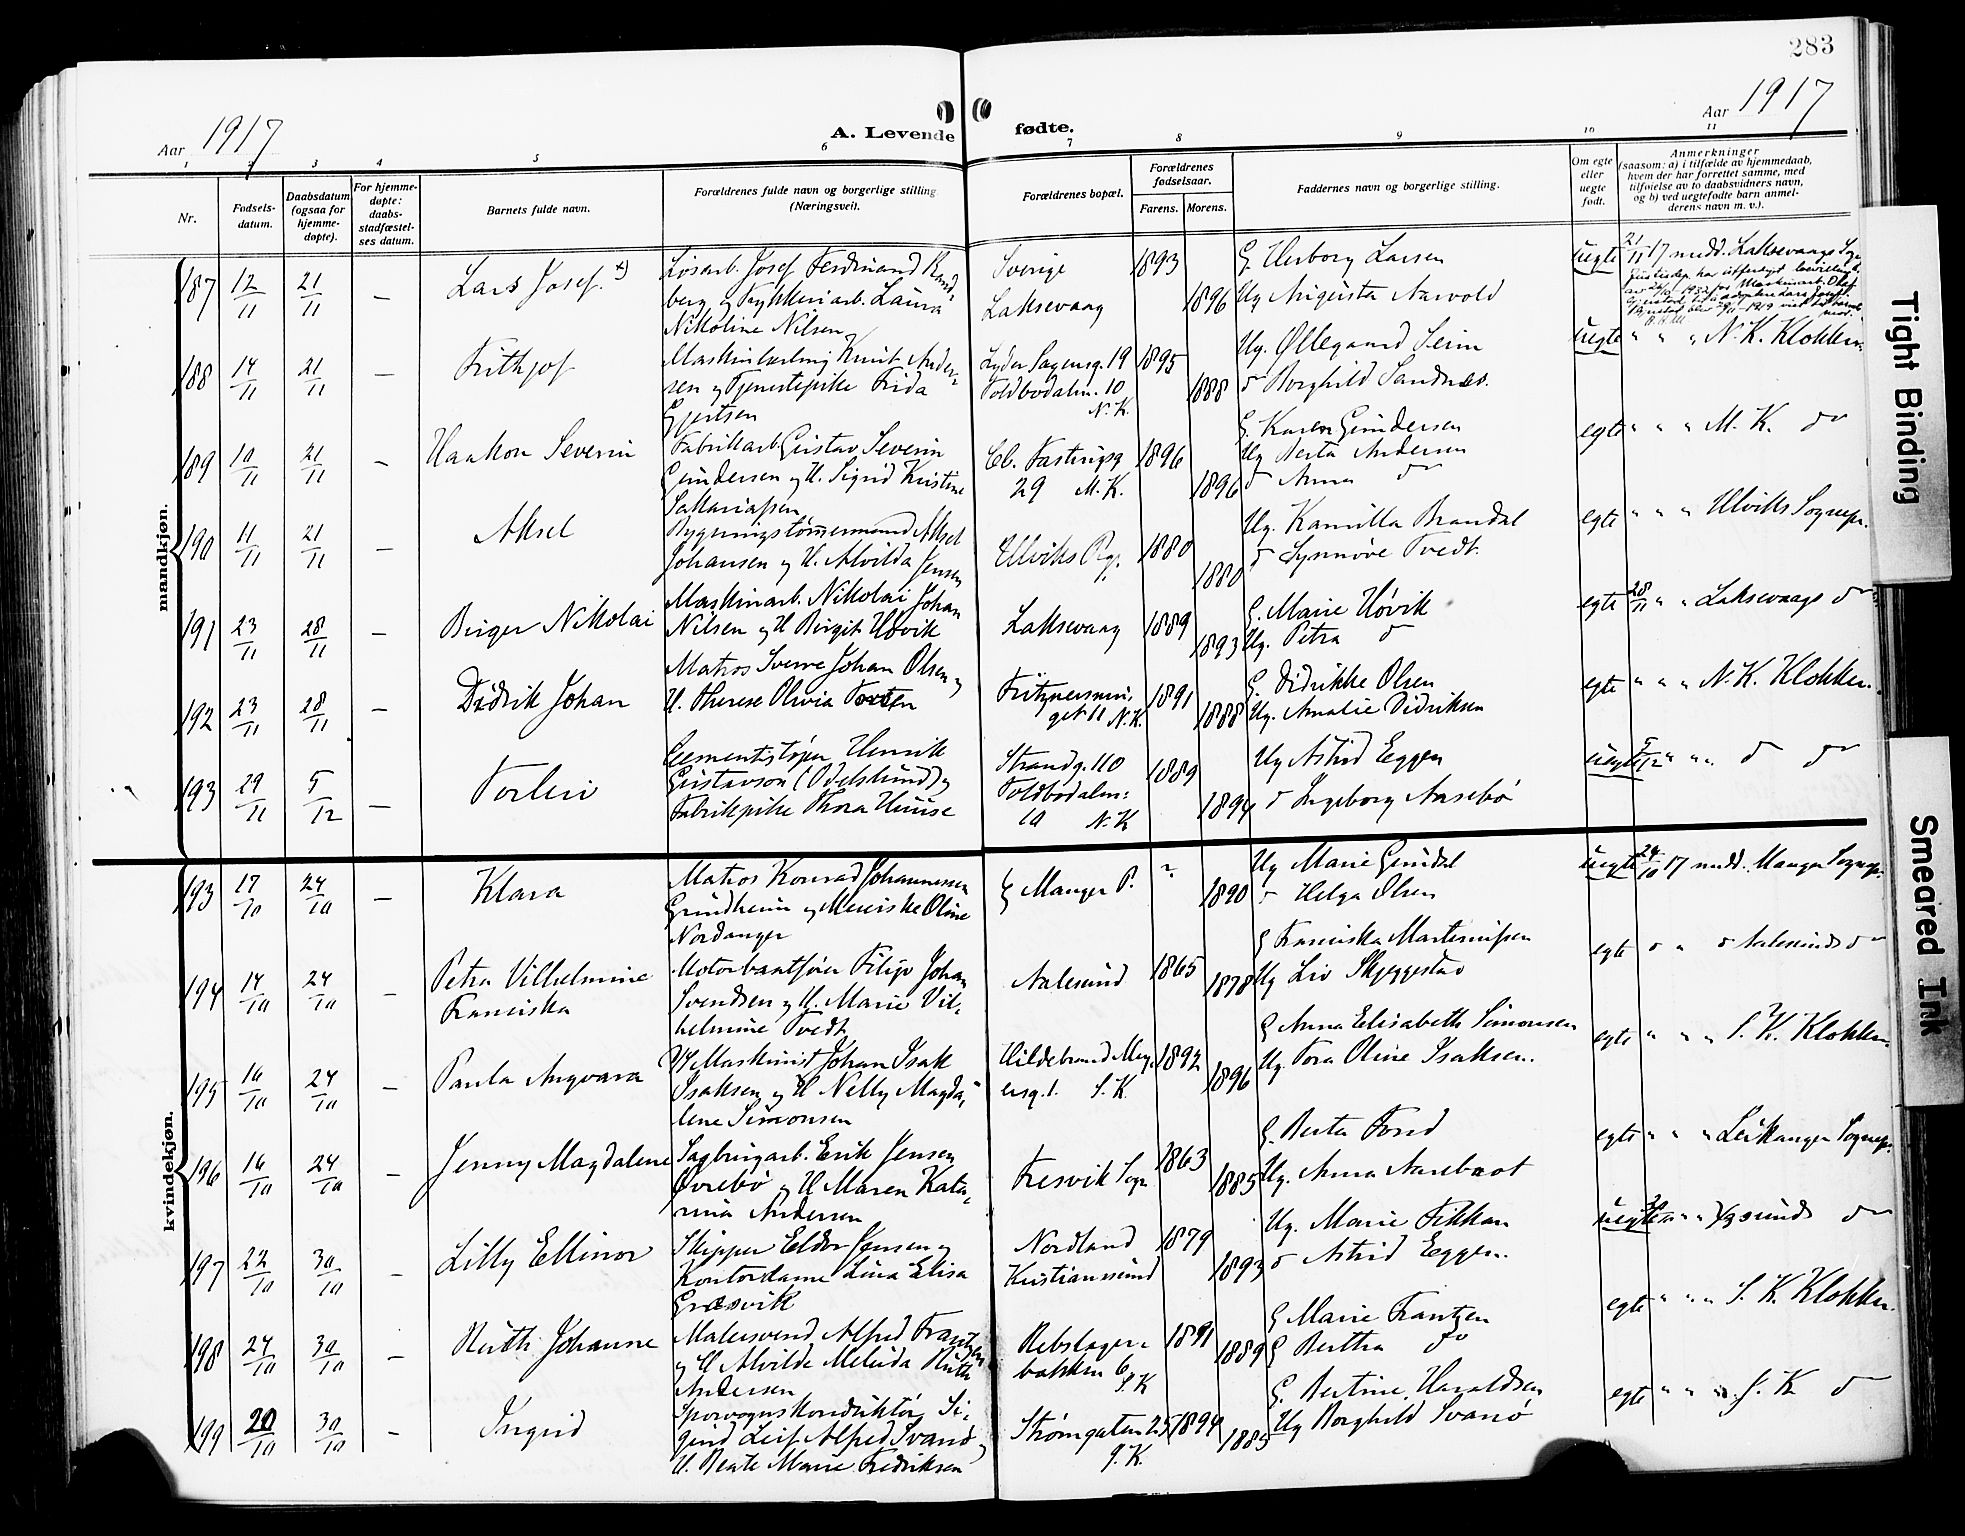 283
Aar 1917
A. Levende fødte.
Aar 1917
1 2 3 4 5 6 7 8 9 10 11
Nr.
Fødsels-
datum.
Daabsdatum
(ogsaa for
hjemme-
døpte).
For hjemme-
døpte:
daabs-
stadfæstel-
ses datum.
Barnets fulde navn.
Forældrenes fulde navn og borgerlige stilling
(Næringsvei).
Forældrenes bopæl.
Forældrenes
fødselsaar.
Farens. Morens.
Faddernes navn og borgerlige stilling.
Om egte
eller
uegte
født.
Anmerkninger
(saasom: a) i tilfælde av hjemmedaab,
hvem der har forrettet samme, med
tilføielse av to daabsvidners navn,
og b) ved uegtefødte barn anmel-
derens navn m. v.).
mandkjøn.
187 12/11 21/11 — Lars Josef. x)
Løsarb. Josef Ferdinand Rand-
berg og Trykkeriarb. Laura
Nikoline Nilsen
Sverige
Laksevaag
1893 1896
G. Herborg Larsen
Ug Augusta Aarvold
uegte 21/11 17 medd. Laksevaags Sogn
188 14/11 21/11 — Frithjof
Maskinlærling Knut Ander-
sen og Tjenestepike Frida
Gjertsen
Lyder Sagensg. 19
Toldbodalm. 10
N. K.
1895 1888
Ug. Øllegaard Seim
do Borghild Sandnes.
uegte " " " N. K. Klokker.
189 10/11 21/11 — Haakon Severin
Fabrikkarb. Gustav Severin
Gundersen og H. Sigrid Kristine
Sakariassen
Cl. Fastingsg
29 M. K.
1896 1896
G. Karen Gundersen
Ug Berta Andersen
do Anna do
egte " " " M. K. do
190 11/11 21/11 — Aksel
Bygningstømmermand Aksel
Johansen og H. Alvilda Jensen
Ulviks Pgj.
1880 1880
Ug. Kamilla Brandal
do Synnøve Tvedt.
egte " " " Ulviks Sognepr.
191 23/11 28/11 — Birger Nikolai
Maskinarb. Nikolai Johan
Nilsen og H Birgit Høvik
Laksevaag
1889 1893
G. Marie Høvik
Ug. Petra do
egte 28/11 " " Laksevaags do
192 23/11 28/11 — Didrik Johan
Matros Sverre Johan Olsen og
H. Therese Olivia
1891 1888
G. Didrikke Olsen
Ug. Amalie Didriksen
egte " " " N. K. Klokker.
193 29/11 5/12 — Torleiv
Cementstøper Henrik
Gustavson (Odelslund) og
Fabrikpike Thora Huuse
Strandg. 110
Toldbodalm:
10 N. K
1889 1894
Ug Astrid Eggen
do Ingeborg Aasebø
uegte 5/12 " " do do
kvindekjøn.
193 17/10 24/10 — Klara
Matros Konrad Johannesen
Grundheim og Meierske Oline
Nordanger
Manger P.
? 1890
Ug Marie Grindal
do Helga Olsen
uegte 24/10 17 medd. Manger Sognepr.
194 14/10 24/10 — Petra Vilhelmine
Franciska
Motorbaatfører Filip Johan
Svendsen og H. Marie Vil-
helmine Tvedt
Aalesund
1865 1878
G Franciska Martinussen
Ug Liv Skjeggestad
egte do " do Aalesunds do
195 16/10 24/10 — Paula Angvara
Maskinist Johan Isak
Isaksen og H Nelly Magda-
lene Simonsen
Hildebrand Mey-
ersg. 1. S. K.
1892 1896
G Anna Elisabeth Simonsen
Ug. Tora Oline Isaksen.
egte " " " S. K. Klokker.
196 16/10 24/10 — Jenny Magdalene
Sagbrugarb. Erik Jensen
Øvrebø og H Maren Kata-
rina Andersen
Fresvik Sogn
1863 1885
G. Berta
Ug. Anna
egte " " " Leikanger Sognepr.
197 22/10 30/10 — Lilly Ellinor
Skipper Eldor Jensen og
Kontordame Lina Elisa
Græsvik
Nordland
Kristianssund
1879 1893
Ug. Marie Fikkan
do Astrid Eggen.
uegte " " do
198 24/10 30/10 — Ruth Johanne
Malersvend Alfred Frantzen
og H Alvilde Melinda Ruth
Andersen
Rebslager-
bakken 6
S. K
1891 1889
G Marie Frantzen
G Bertha do
egte " " " S. K. Klokker.
199 20/10 30/10 — Ingrid
Sporvognskonduktør Si-
gurd Leif Alfred Svanø og
H. Beate Marie Fredriksen
Strømgaten 25
J. K.
1894 1885
G. Bertine Haraldsen
Ug Borghild Svanø
egte " " " J. K do
Tight Binding
Smeared Ink